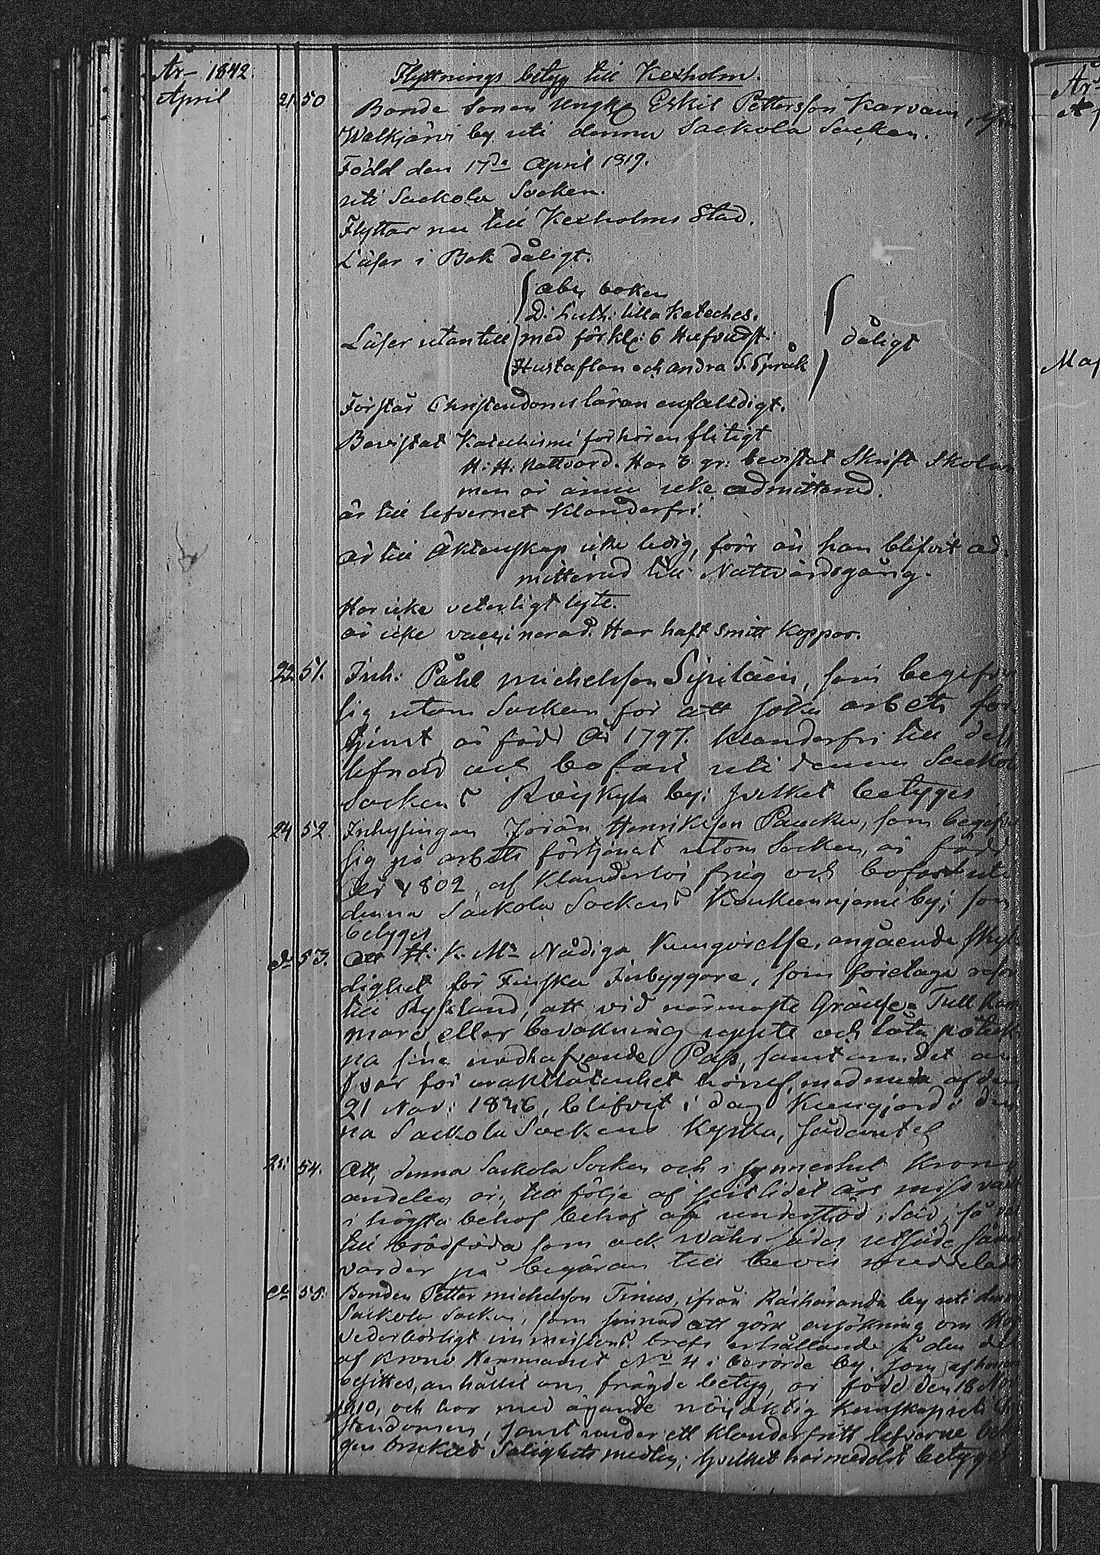 År 1842.
April
Flyttnings betyg till Kexholm.
21 50 Bonde Sonen Ungk. Eskil Pettersson Karvain,
Walkjärvi by uti denna Sackola Socken.
Född den 17de April 1819.
uti Sackola Socken.
Flyttar nu till Kexholms Stad.
Läser i Bok dåligt.
abc boken
D: Luth: lilla Kateches.
Läser utantill med förkl: 6 Hufvudst: dåligt
Hustaflan och andra S. Språk
Förstår Christendomsläran enfalldigt.
Bevistat Katechismi förhören flitigt
H. H. Nattvard. Har 3 gr: bevistat Skrift Skolan
men är ännu icke admitterad.
är till lefvernet Klanderfri.
är till Äktenskap icke ledig, förr än han blifvit ad-
mitterad till Nattvardsgång.
Har icke veterligt lyte.
är icke vaccinerad. Har haft Smitt Koppor.
22 51. Inh: Påhl Michelsson Sipiläin, som begifver
sig utom Socken för att söka arbets för-
tjenst, är född År 1797. Klanderfri till dess
lefnad och bofast uti denna Sackola
Sockens Röykylä by; hvilket betygas
24 52. Inhysingen Jöran Henriksson Paucku, som begifver
sig på arbets förtjenst utom Socken, är född
År 1802, af Klanderlös fräg och bofast uti
denna Sackola Sockens Koukunniemi by; som
betygas
do 53. Att H. K. Mts Nådiga Kungörelse, angående skyl-
dighet för Finska Inbyggare, som företaga resor
till Ryssland, att vid närmaste Gräntse Tull Kam-
mare eller bevakning uppte och låta påteck-
na sina innehafvande Pass, samt om det an-
svar för uraktlåtenhet häruf medmera af den
21 Nov: 1836, blifvit i dag Kungjord i den-
na Sackola Sockens Kyrka, sådant
25. 54. Att, denna Sackola Socken och i synnerhet Krono
andelen är, till följe af sistlidet års missväxt
i högsta behof behof af understöd i Säd, så väl
till brödföda som ock
varder på begäran till bevis meddeladt
do 55. Bonden Petter Michelsson Timus, ifrån Räihäranda by uti denna
Sackola Socken, som sinnad att göra ansökning om
Vederbörligt immissions brefs erhållande på den del
af Krono Hemmanet No 4 i berörde by, som af honom
besittes, anhållit om frägde betyg, är född den 18
1810, och har med ägande nöjaktig Kunskap uti Chri-
stendomen, samt under ett Klanderfritt lefverne
gen brukat Salighetsmedlen; hvilket härmedelst betygas
År
Ap
Maj